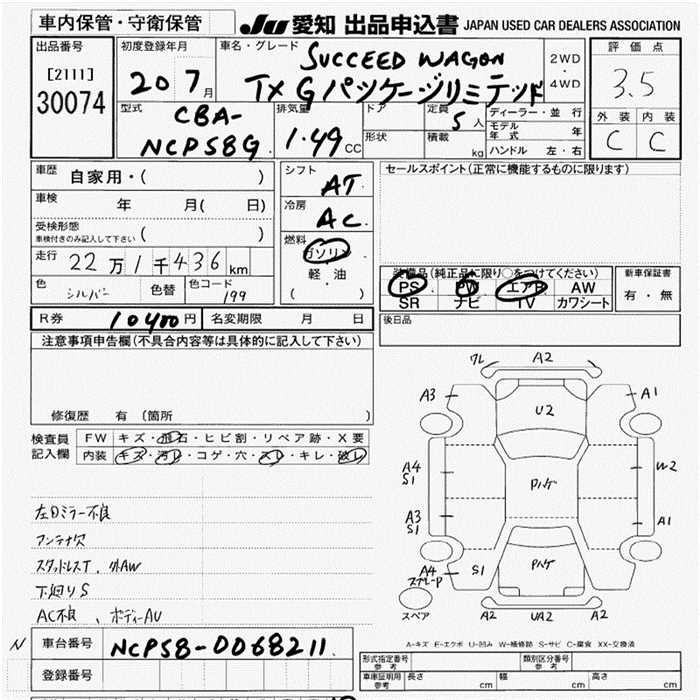 車内保管・守衛保管
JU 愛知 出品申込書 JAPAN USED CAR DEALERS ASSOCIATION
出品番号
[2111]
30074
初度登録年月
20 7月
車名・グレード
SUCCEED WAGON
TX G パッケージリミテッド
2WD
・
4WD
評価点
3.5
外装 内装
C C
型式
CBA-
NCP58G
排気量
1.49 CC
ドア
形状
定員
5人
積載
kg
ディーラー・並行
モデル年式 年
ハンドル 左・右
車歴
自家用・( )
車検
年 月( 日)
受検形態
車検付きのみ記入して下さい ( )
走行
22万1千436km
色
シルバー
色替
色コード
199
シフト
AT
冷房
AC
燃料
ガソリン
軽・油
( )
セールスポイント(正常に機能するものに限ります)
装備品(純正品に限り○をつけてください)
PS PW エアB AW
SR ナビ TV カワシート
新車保証書
有・無
R券 10400円
名変期限 月 日
後日品
注意事項申告欄(不具合内容等は具体的に記入して下さい)
修復歴 有(箇所 )
検査員
記入欄
FW キズ・飛石・ヒビ割・リペア跡・X要
内装 キズ・汚レ・コゲ・穴・スレ・キレ・破レ
左Dミラー不良
アンテナ欠
スタッドレスT、外AW
下廻りS
AC不良、ボディーAU
ワレ A2
A3 A1
U2
A4
S1
W2
Pハゲ
A3
S1
A1
Pハゲ
A4
S1
スペア
A2 UA2 A2
A-キズ E-エクボ U-凹み W-補修跡 S-サビ C-腐食 XX-交換済
N
車台番号 NCP58-0068211
登録番号
形式指定番号
参考
類別区分番号
参考
車庫証明用
参考
長さ cm
幅 cm
高さ cm